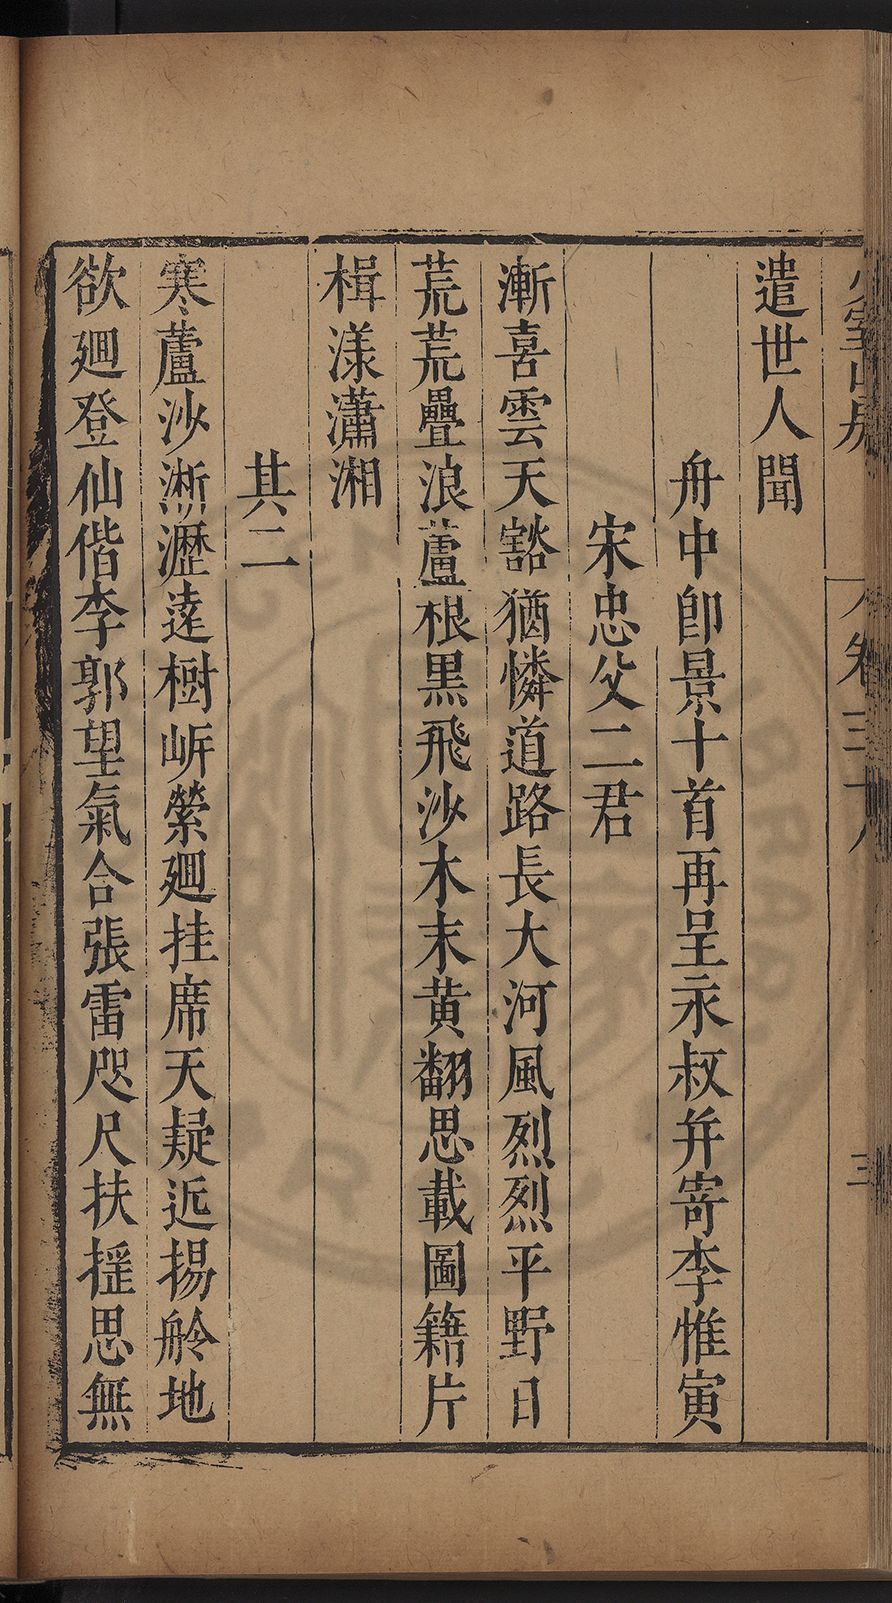 少室山房 卷三十八 三
遣世人聞
舟中卽景十首再呈永叔并寄李惟寅
宋忠父二君
漸喜雲天豁猶憐道路長大河風烈烈平野日
荒荒疊浪蘆根黑飛沙木末黄翻思載圖籍片
楫漾瀟湘
其二
寒蘆沙淅瀝遠樹岓縈廻挂席天疑近揚舲地
欲廻登仙偕李郭望氣合張雷咫尺扶摇思無